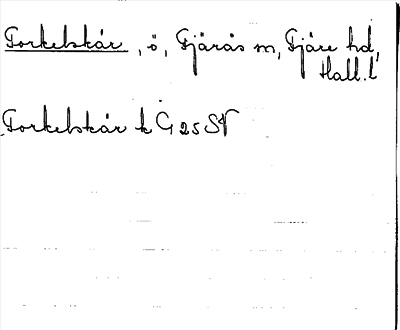 Torkelskär, ö, Fjärås m, Fjäre hd,
Hall. l
Torkelskär k G 25 SV